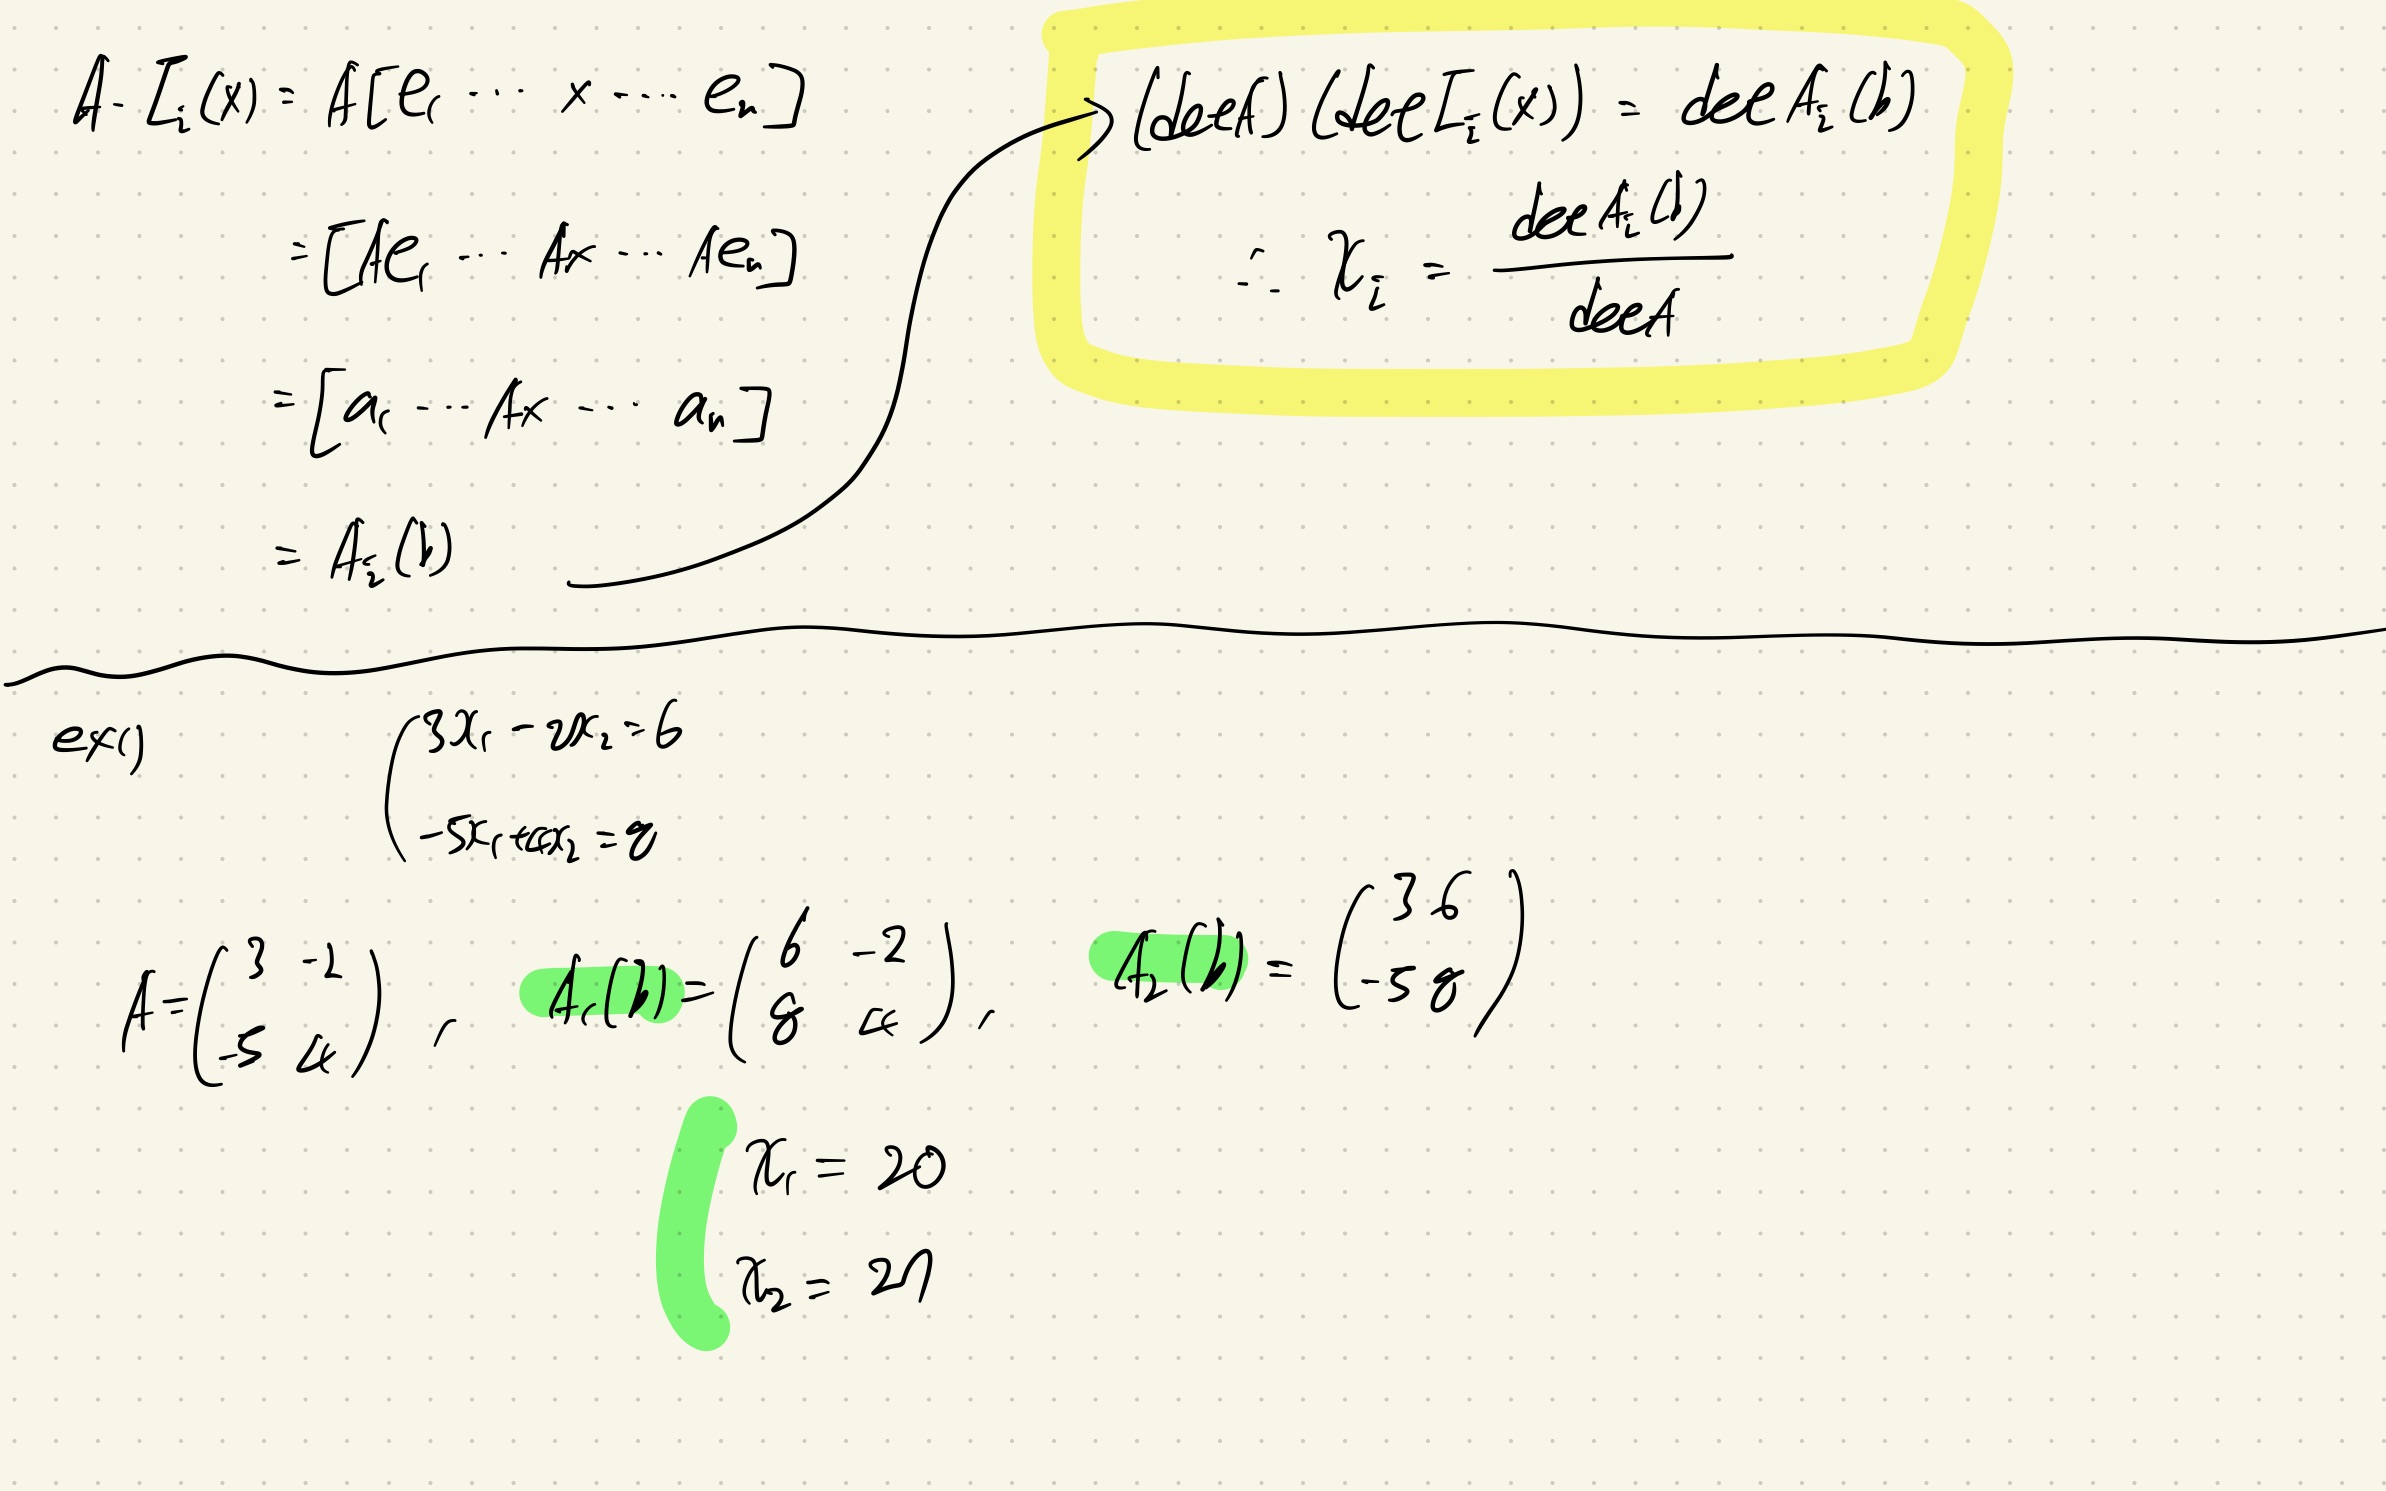 A·I_i(x) = A[e_1 ··· x ··· e_n]
= [Ae_1 ··· Ax ··· Ae_n]
= [a_1 ··· Ax ··· a_n]
= A_i(b)
(det A)(det I_i(x)) = det A_i(b)
∴ x_i = det A_i(b) / det A
ex1)
3x_1 - 2x_2 = 6
-5x_1 + 4x_2 = 8
A = (3 -2; -5 4), A_1(b) = (6 -2; 8 4), A_2(b) = (3 6; -5 8)
x_1 = 20
x_2 = 27